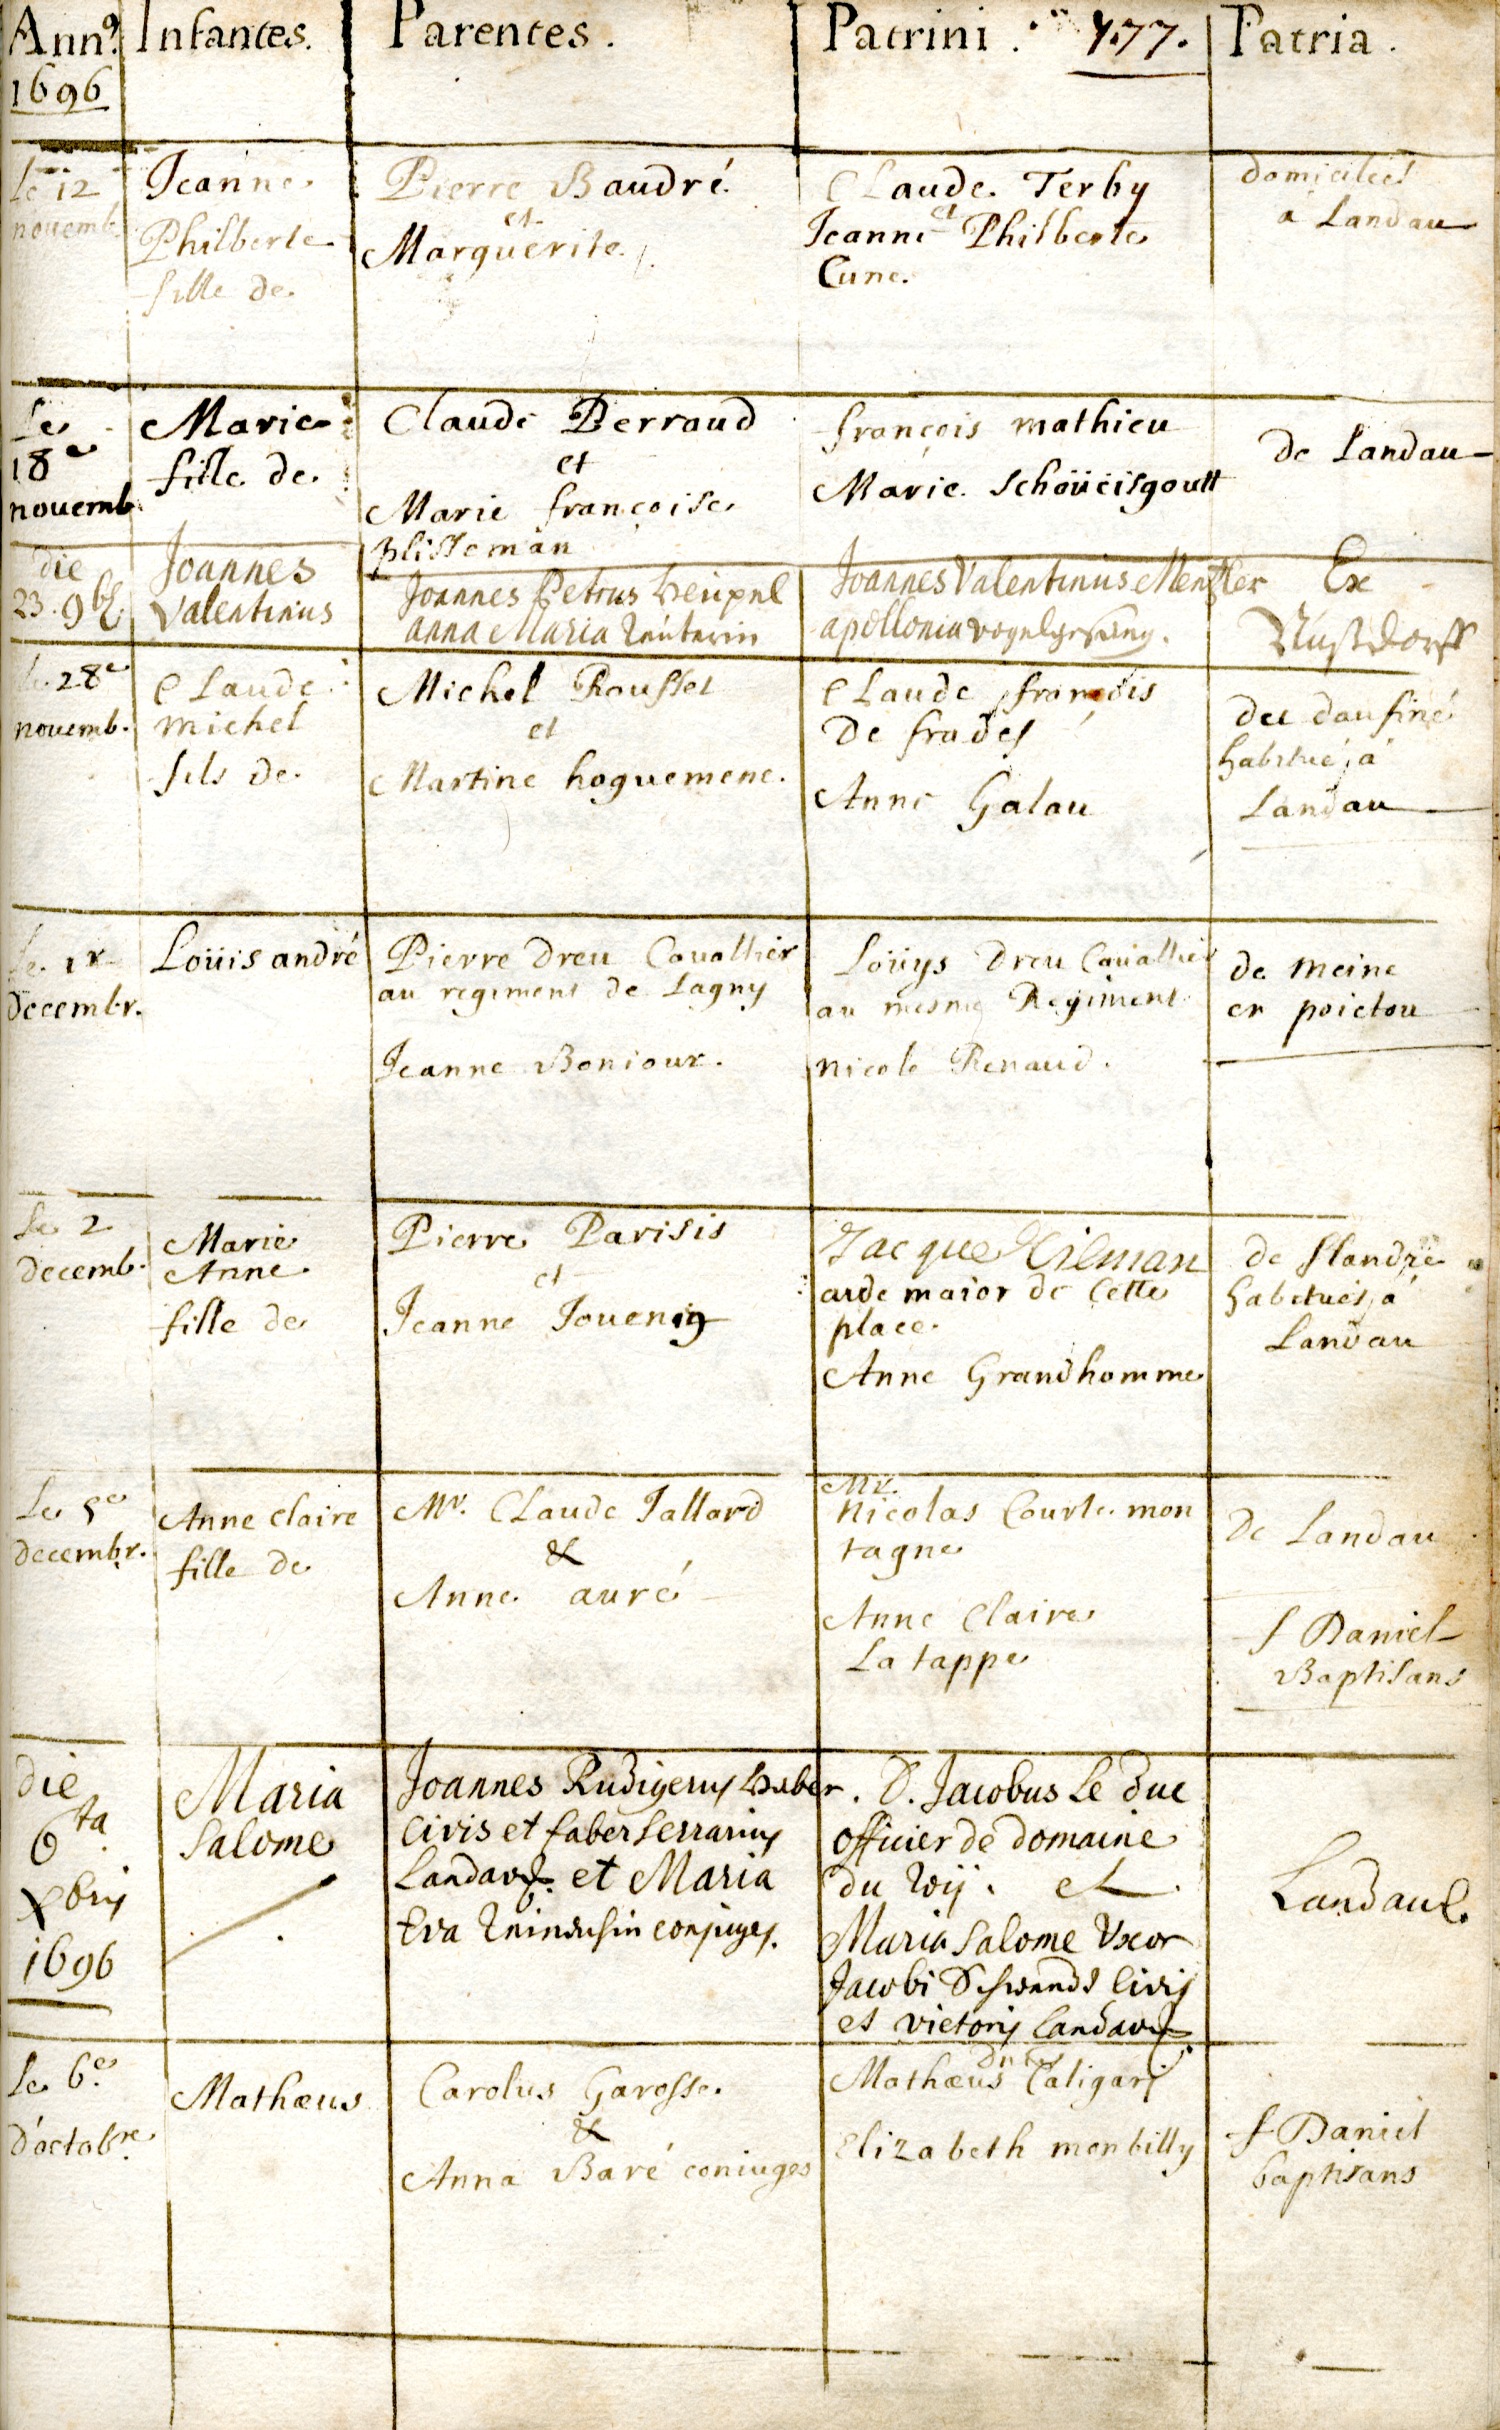 Ann⁹. Infantes. Parentes. Patrini. 477. Patria.
1696
Le 12
novemb.
Jeanne
Philberte
fille de
Pierre Baudré
et
Marguerite
Claude Terby
et
Jeanne Philberte
Cune.
domiciliés
a Landau
Le
18e
novemb
Marie
fille de
Claude Perraud
et
Marie françoise
plisseman
françois mathieu
Marie Schoüeisgoutt
de Landau
die
23. 9b.
Joannes
Valentinus
Joannes Petrus
anna Maria
Joannes Valentinus Mentzler
apollonia vogelgesang.
Ex
Nusdorff
le 28e
novemb.
Claude
michel
fils de
Michel Rousset
et
Martine hoguemene.
Claude françois
De frades
Anne Galau
du daufiné
habitué à
Landau
Le 1r
Decembr.
Loüis andré
Pierre Dreu Cavallier
au regiment de Lagny
Jeanne Boniour.
Loüys Dreu Cavallier
au mesme Regiment
nicole Renaud.
de meine
en poictou
Le 2
decemb.
Marie
Anne
fille de
Pierre Parisis
et
Jeanne
Jacque Hilman
aide maior de cette
place.
Anne Grandhomme
de flandre
habitués à
Landau
Le 5e
decembr.
Anne claire
fille de
Mr. Claude Jallard
&
Anne auré
Mr.
Nicolas Courte mon
tagne
Anne Claire
La tappe
De Landau
f Daniel
Baptisans
die
6ta
Xbris
1696
Maria
Salome
Joannes Rudigerus Huber
civis et faber serrarius
Landav. et Maria
Eva conjuges.
D. Jacobus Le duc
officier de domaine
du Roÿ. et
Maria Salome Uxor
Jacobi Schwendt civis
et vietoris Landav.
Landau.
Le 6e
d'octobre
Mathæus
Carolus Garosse
&
Anna Baré coniuges
Mathæus Caligari
Elizabeth monbilly
f Daniel
baptisans